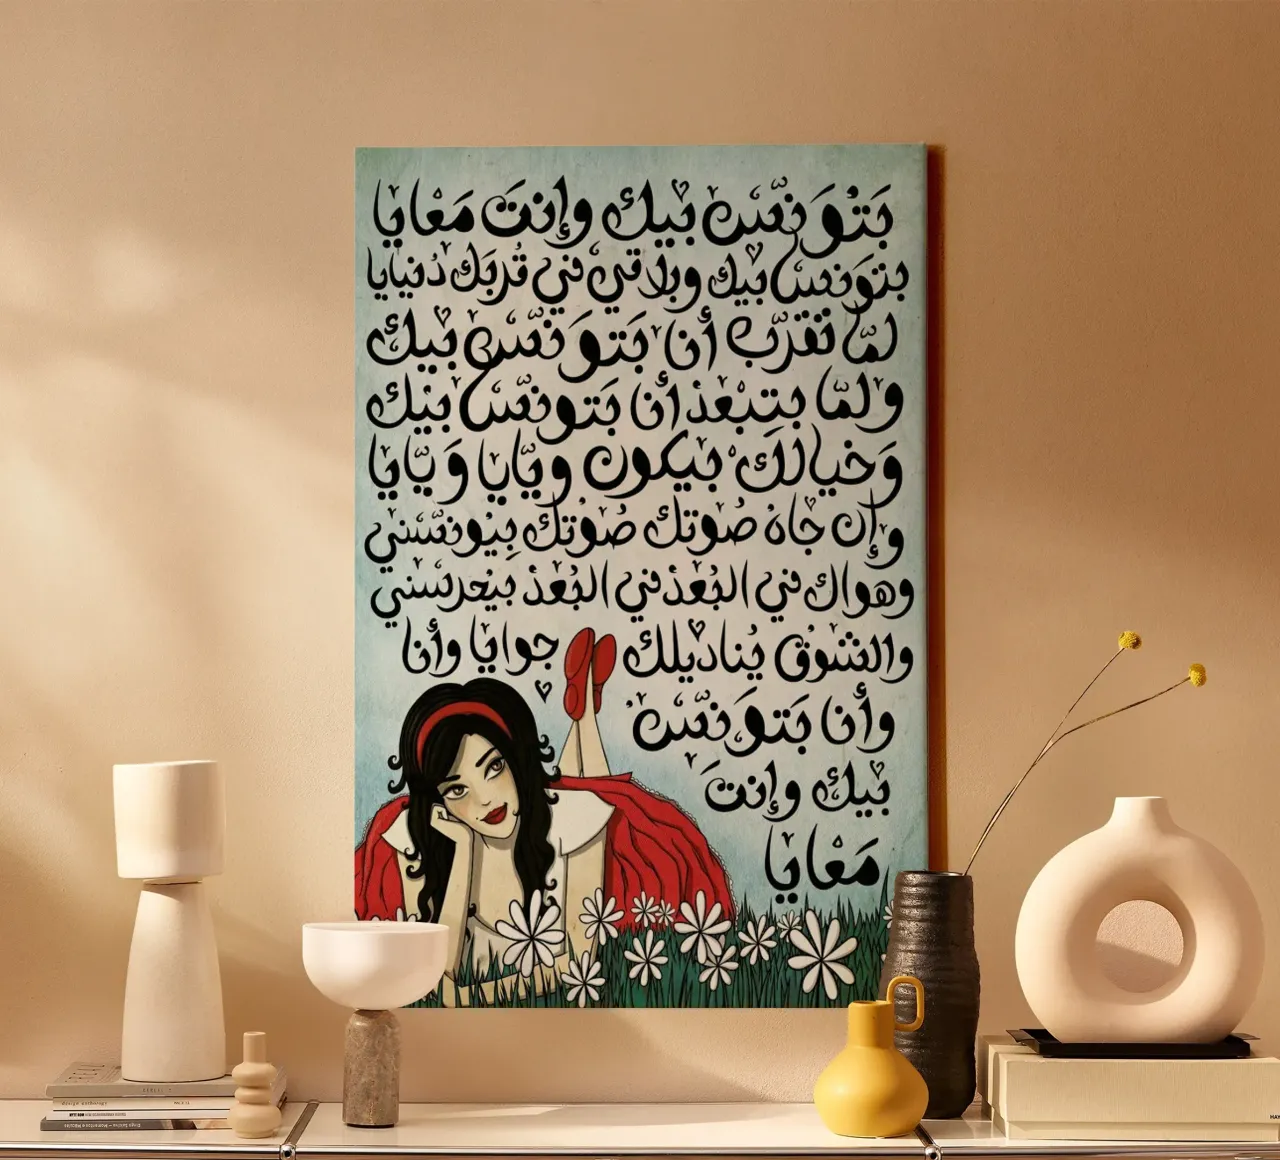 بَتْوَنّس بيك وإنتَ مَعَايا
بتوَنس بيك وبلاقي في قُربَك دُنيايا
لمّا تقرّب أنا بَتوَنّس بيك
ولمّا بتِبْعْد أنا بَتونّس بيك
وَخيالَك بيكون ويّايا وَيّايا
وإن جاه صُوتك صُوتَك بِيونّسني
وهواك في البُعد في البُعد بيحرسني
والشوق يُناديلك جوايا وأنا
وأنا بَتوَنّس
بيك وإنتَ
مَعَايا